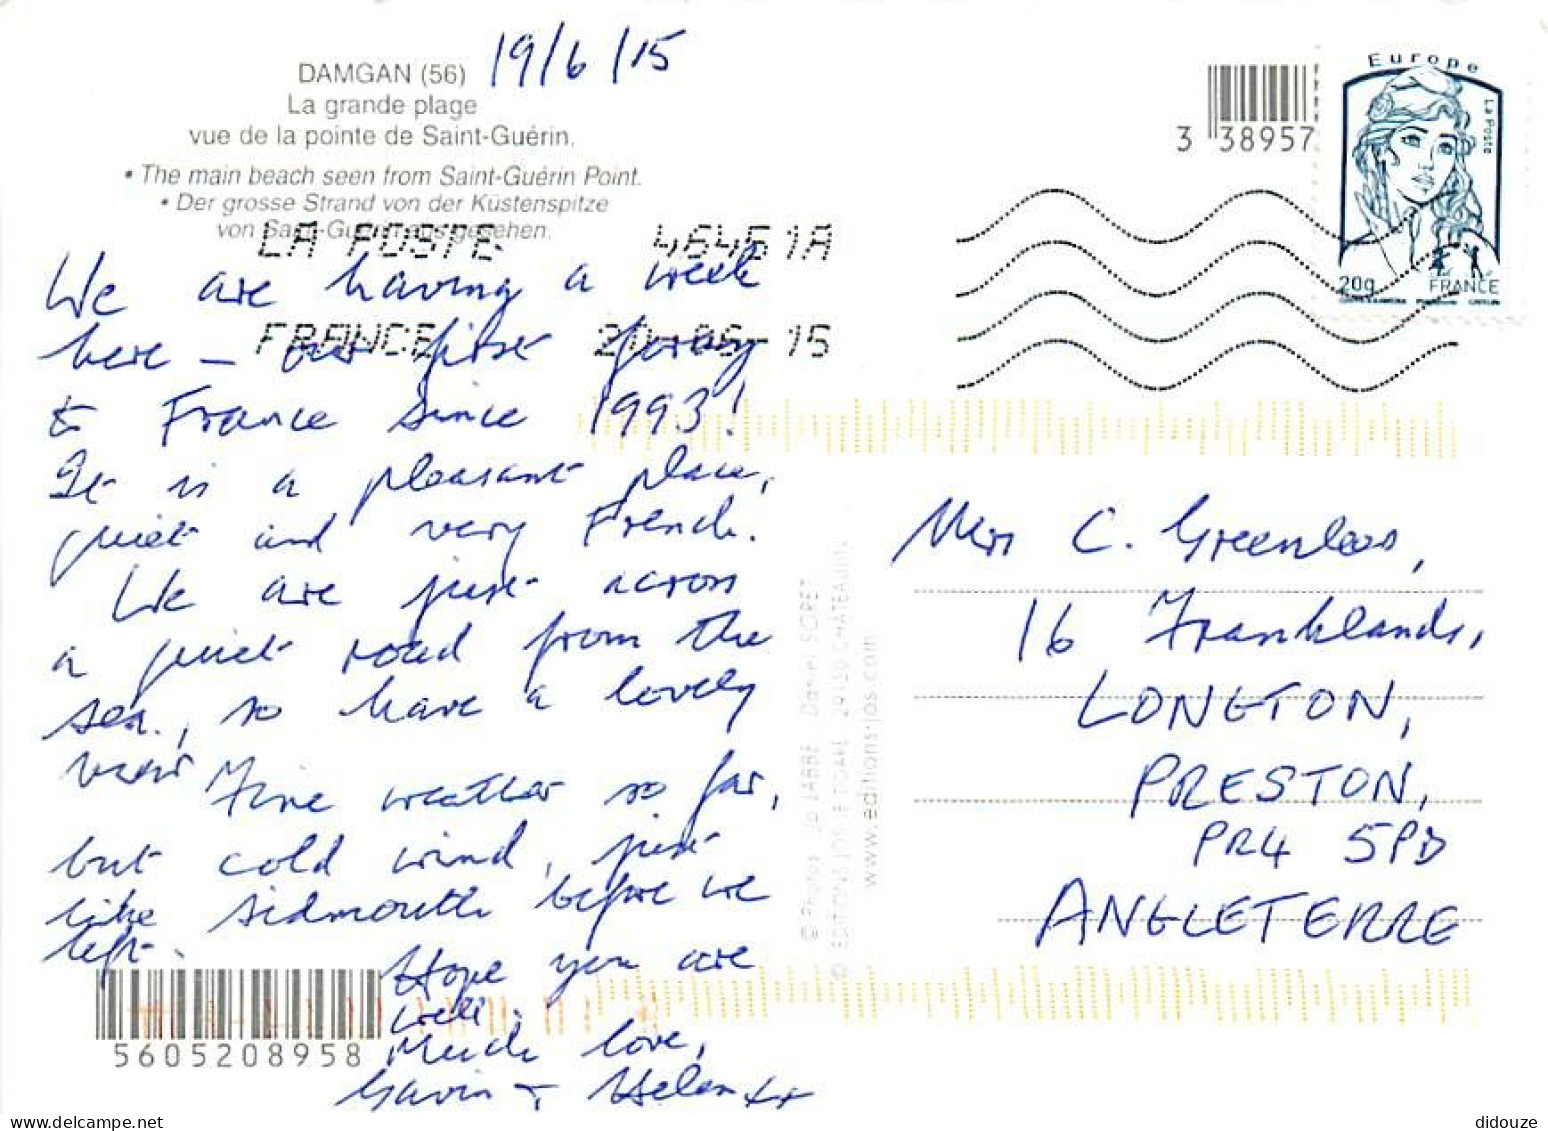 19/6/15
DAMGAN (56)
La grande plage
vue de la pointe de Saint-Guérin.
• The main beach seen from Saint-Guérin Point.
• Der grosse Strand von der Küstenspitze
von Saint-Guérin aus gesehen.
LA POSTE 46461A
FRANCE 20-06-15
3 38957
Europe
La Poste
20g FRANCE
We are having a week
here – our first foray
to France since 1993!
It is a pleasant place,
quiet and very French.
We are just across
a quiet road from the
sea, so have a lovely
view Fine weather so far,
but cold wind, just
like Sidmouth before we
left.
Hope you are
well.
Much love,
Gavin + Helen xx
5605208958
© Photos Jo LABBE Daniel SORET
© EDITIONS JOS LE DOARE 29150 CHATEAULIN
www.editions-jos.com
Mrs C. Greenlees,
16 Franklands,
LONGTON,
PRESTON,
PR4 5PD
ANGLETERRE
didouze